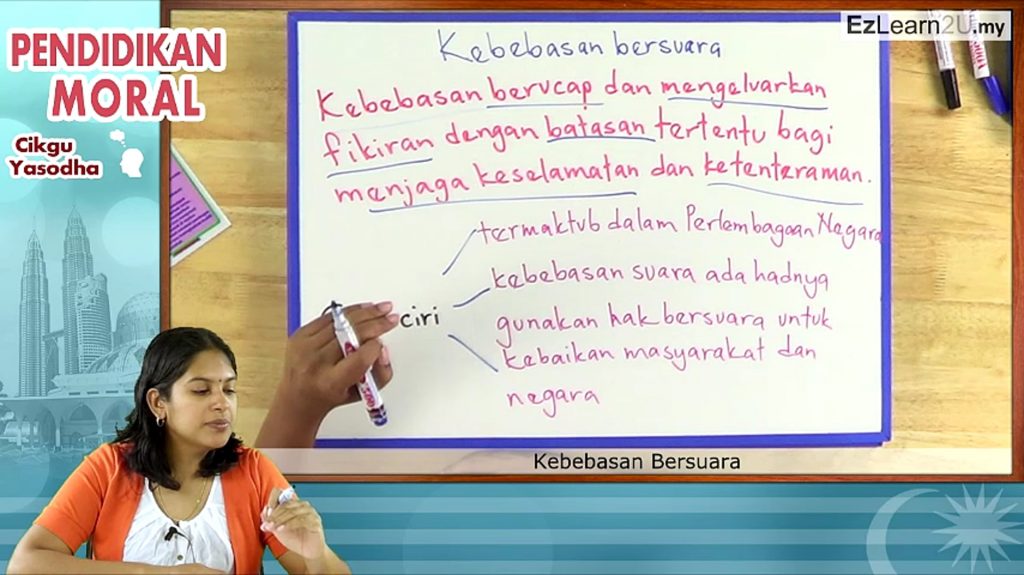 EzLearn2U.my
PENDIDIKAN
MORAL
Cikgu
Yasodha
Kebebasan bersuara
Kebebasan berucap dan mengeluarkan
fikiran dengan batasan tertentu bagi
menjaga keselamatan dan ketenteraman.
termaktub dalam Perlembagaan Negara
kebebasan suara ada hadnya
ciri
gunakan hak bersuara untuk
kebaikan masyarakat dan
negara
Kebebasan Bersuara